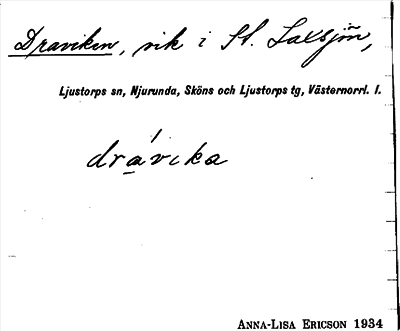 Draviken, vik i St. Laxsjön,
Ljustorps sn, Njurunda, Sköns och Ljustorps tg, Västernorrl. l.
drá̱vıka
ANNA-LISA ERICSON 1934